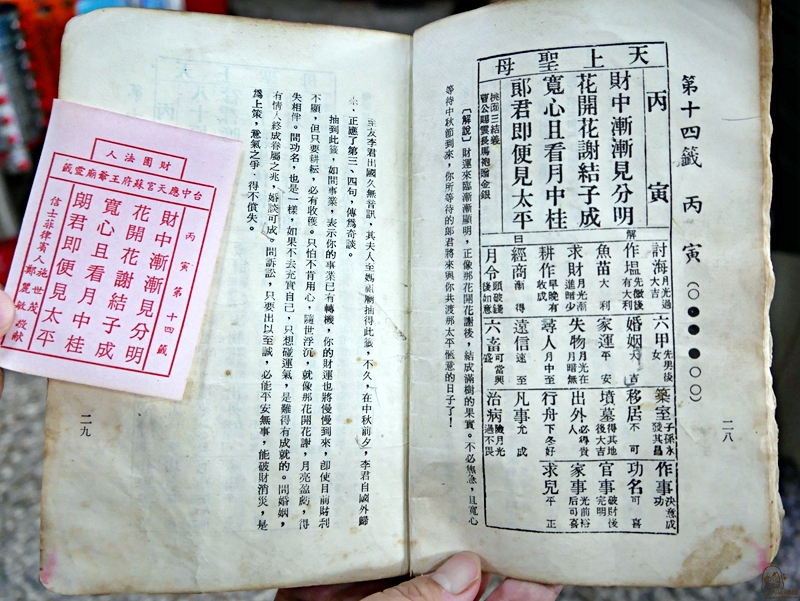 第十四籤 丙寅 (○●●●○○)
天上聖母
丙寅
財中漸漸見分明
花開花謝結子成
寬心且看月中桂
郎君即便見太平
桃園三結義
曹公賜雲長馬袍贈金銀
解曰
討海 月光過大吉
作塭 先微後有大利
魚苗 大利
求財 月光漸進暗少
耕作 早晚有收成
經商 漸得
月令 頭破錢後如意
六甲 先男後女
婚姻 大吉
家運 平安
失物 月光在月暗無
尋人 月中至
遠信 遠至
六畜 可當興盛
築室 子孫永發其昌
移居 不可
墳墓 得其地後大吉
出外 必得貴人
行舟 下冬好
凡事 尤成
治病 險月光過不畏
作事 決意成功
功名 可喜
官事 破財後完明
家事 光前裕后可喜
求兒 平正
【解說】財運來臨漸漸顯明，正像那花開花謝後，結成滿樹的果實。不必焦急，且寬心
等待中秋節到來，你所等待的郎君將來與你共渡那太平愜意的日子了！
二八
友李君出國久無音訊，其夫人至媽祖廟抽得此籤，不久，在中秋前夕，李君自國外歸
來，正應了第三、四句，傳為奇談。
抽到此籤，如問事業，表示你的事業已有轉機，你的財運也將慢慢到來，即使目前財利
不顯，但只要耕耘，必有收穫。只怕不肯用心，隨世浮沉，就像那花開花謝，月亮盈虧，得
失相伴。問功名，也是一樣，如果不去充實自己，只想碰運氣，是難得有成就的。問婚姻，
有情人終成眷屬之兆，婚談可成。問訴訟，只要出以至誠，必能平安無事，能破財消災，是
為上策，意氣之爭，得不償失。
二九
財團法人
台中應天宮蘇府王爺廟靈籤
丙寅 第十四籤
財中漸漸見分明
花開花謝結子成
寬心且看月中桂
朗君即便見太平
信士菲律賓人 施世茂 鄭麗敏 敬獻